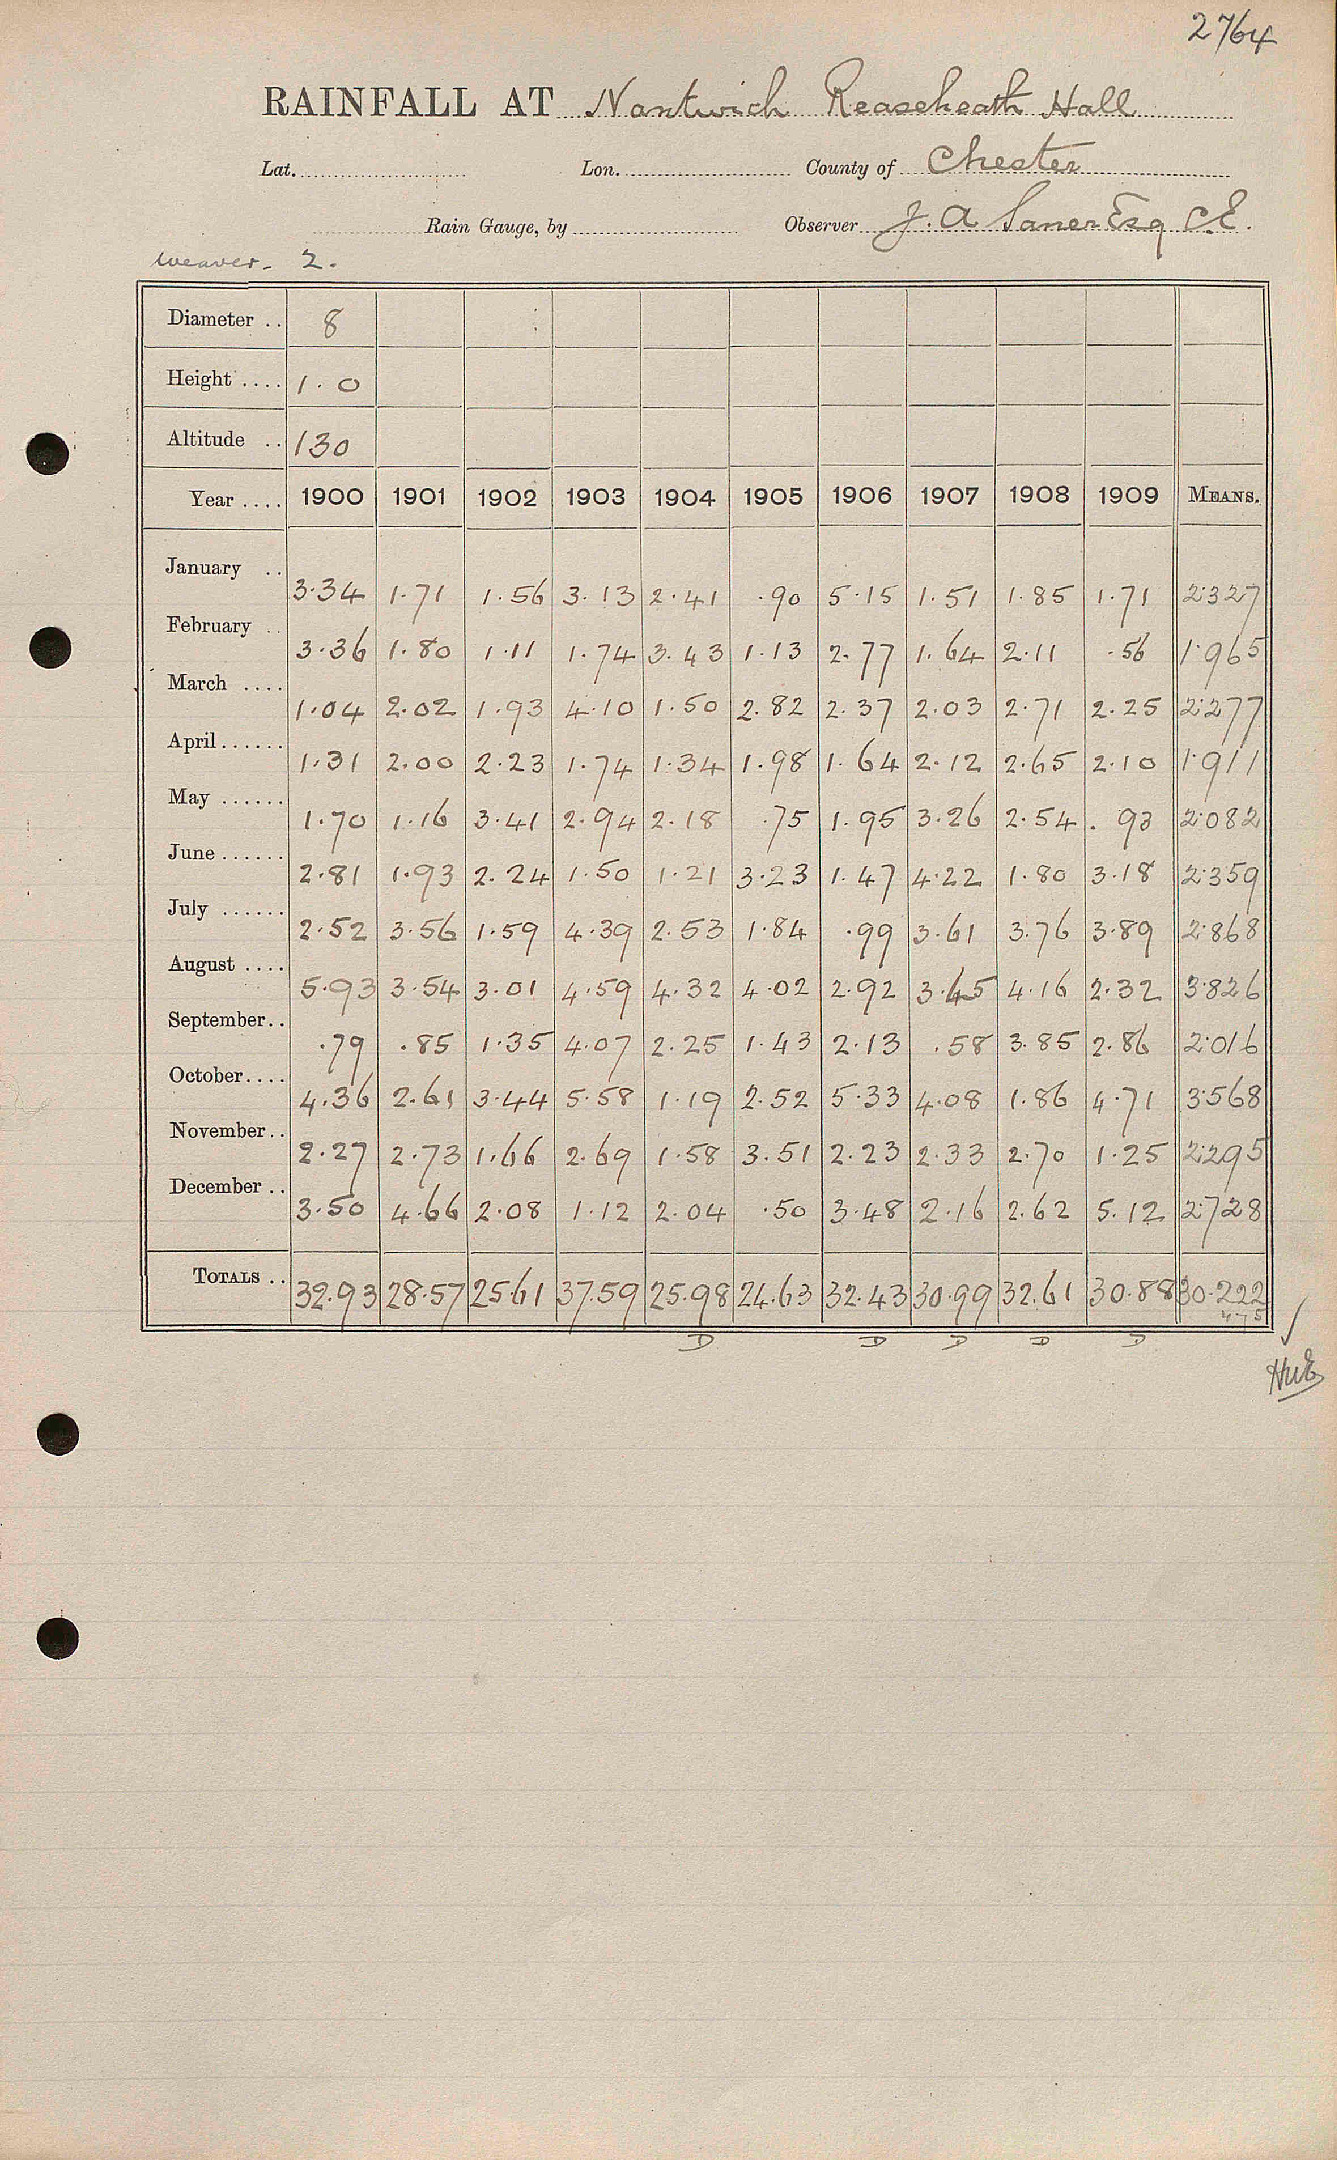 2764
RAINFALL AT Nantwich Reaseheath Hall
Lat. Lon. County of Chester
Rain Gauge, by Observer J. A Saner Esq C.E.
Weaver - 2.
Diameter .. 8
Height .... 1.0
Altitude .. 130
Year .... 1900 1901 1902 1903 1904 1905 1906 1907 1908 1909 MEANS.
January .. 3.34 1.71 1.56 3.13 2.41 .90 5.15 1.51 1.85 1.71 2.327
February .. 3.36 1.80 1.11 1.74 3.43 1.13 2.77 1.64 2.11 .56 1.965
March .... 1.04 2.02 1.93 4.10 1.50 2.82 2.37 2.03 2.71 2.25 2.277
April ...... 1.31 2.00 2.23 1.74 1.34 1.98 1.64 2.12 2.65 2.10 1.911
May ...... 1.70 1.16 3.41 2.94 2.18 .75 1.95 3.26 2.54 .93 2.082
June ...... 2.81 1.93 2.24 1.50 1.21 3.23 1.47 4.22 1.80 3.18 2.359
July ...... 2.52 3.56 1.59 4.39 2.53 1.84 .99 3.61 3.76 3.89 2.868
August .... 5.93 3.54 3.01 4.59 4.32 4.02 2.92 3.45 4.16 2.32 3.826
September.. .79 .85 1.35 4.07 2.25 1.43 2.13 .58 3.85 2.86 2.016
October.... 4.36 2.61 3.44 5.58 1.19 2.52 5.33 4.08 1.86 4.71 3.568
November.. 2.27 2.73 1.66 2.69 1.58 3.51 2.23 2.33 2.70 1.25 2.295
December .. 3.50 4.66 2.08 1.12 2.04 .50 3.48 2.16 2.62 5.12 2.728
TOTALS .. 32.93 28.57 25.61 37.59 25.98 24.63 32.43 30.99 32.61 30.88 30.222
D D D D D